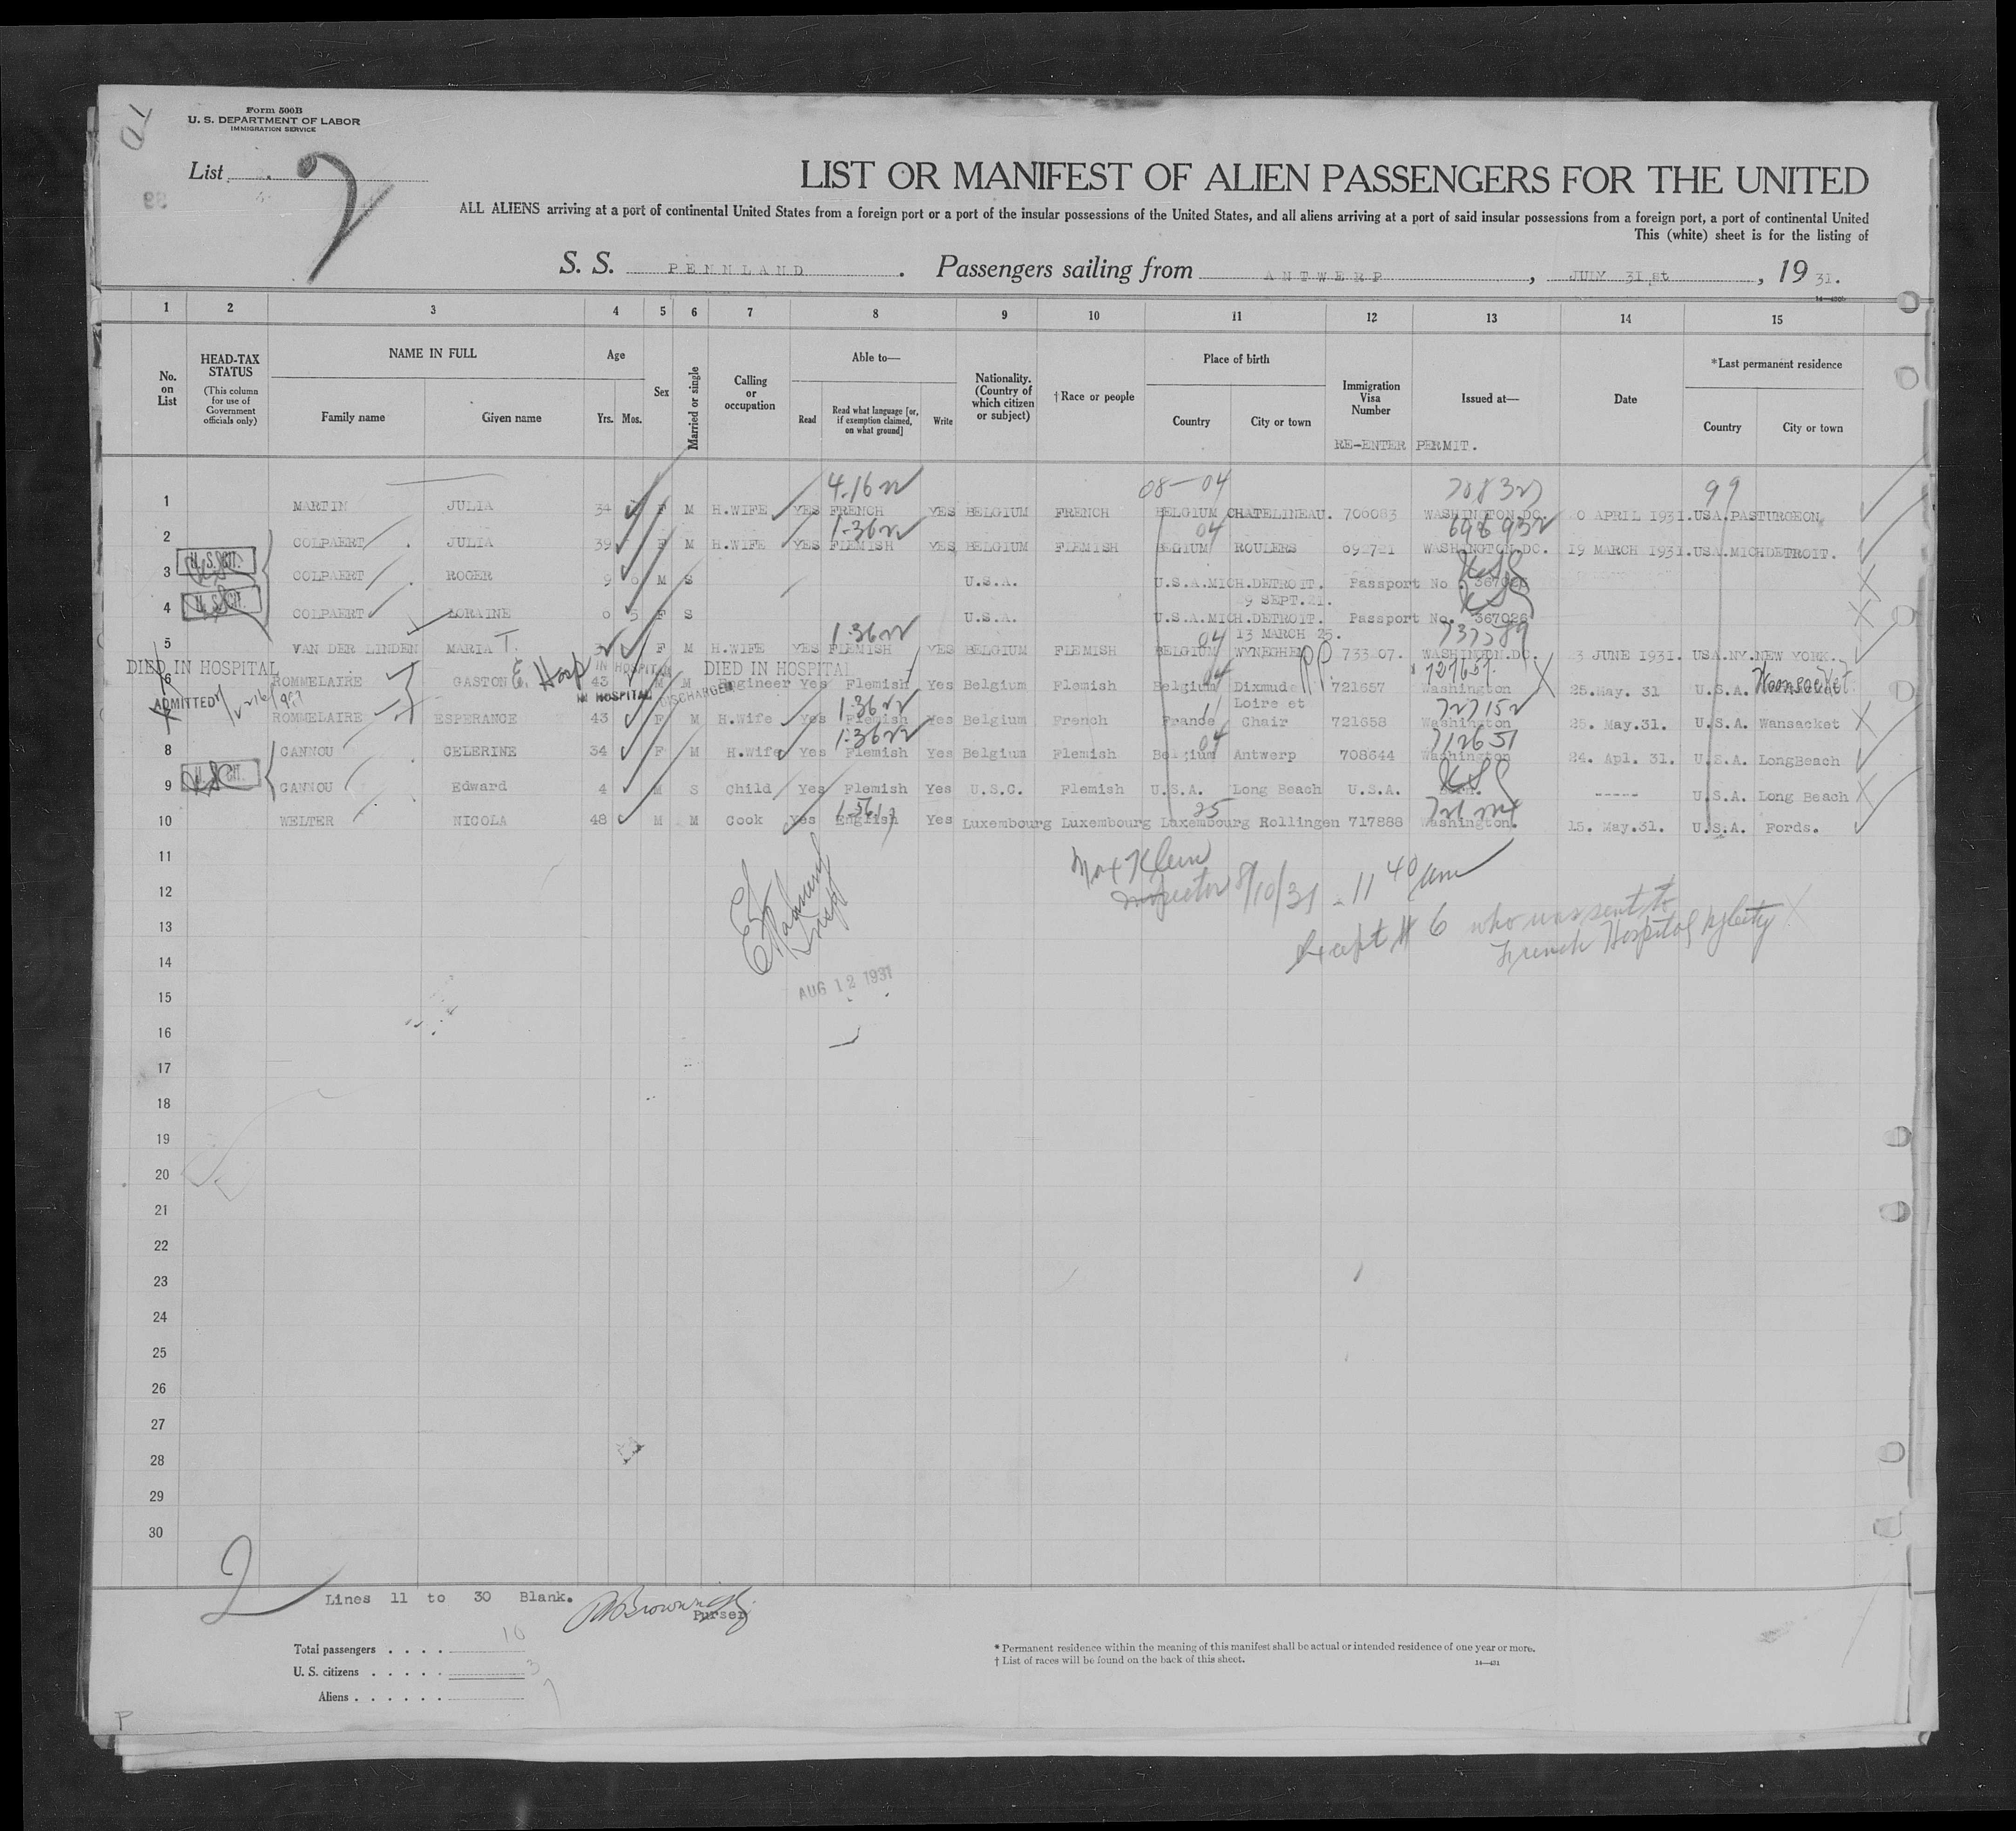 Form 500B
U. S. DEPARTMENT OF LABOR
IMMIGRATION SERVICE
List 2
LIST OR MANIFEST OF ALIEN PASSENGERS FOR THE UNITED
ALL ALIENS arriving at a port of continental United States from a foreign port or a port of the insular possessions of the United States, and all aliens arriving at a port of said insular possessions from a foreign port, a port of continental United
This (white) sheet is for the listing of
S. S. PENNLAND. Passengers sailing from ANTWERP, JULY 31st, 1931.
14—430b
1 2 3 4 5 6 7 8 9 10 11 12 13 14 15
No. on List
HEAD-TAX STATUS (This column for use of Government officials only)
NAME IN FULL
Family name Given name
Age
Yrs. Mos.
Sex
Married or single
Calling or occupation
Able to—
Read Read what language [or, if exemption claimed, on what ground] Write
Nationality. (Country of which citizen or subject)
†Race or people
Place of birth
Country City or town
Immigration Visa Number
RE-ENTER PERMIT.
Issued at—
Date
*Last permanent residence
Country City or town
4-16 08-04 99
1 MARTIN JULIA 34 F M H.WIFE YES FRENCH YES BELGIUM FRENCH BELGIUM CHATELINEAU. 706083 WASHINGTON.DC. APRIL 1931. USA.PA STURGEON.
04
2 COLPAERT JULIA 39 F M H.WIFE YES FLEMISH YES BELGIUM FLEMISH BELGIUM ROULERS 692721 WASHINGTON.DC. 19 MARCH 1931. USA.MICH DETROIT.
U.S. CIT.
3 COLPAERT ROGER 9 M S U.S.A. U.S.A.MICH.DETROIT. Passport No
9 SEPT.21.
U.S. CIT.
4 COLPAERT LORAINE 6 5 F S U.S.A. U.S.A.MICH.DETROIT. Passport No. 367026
04 13 MARCH 25. 737789
5 VAN DER LINDEN MARIA T. F M H.WIFE YES FLEMISH YES BELGIUM FLEMISH BELGIUM WYNEGHEM 733 07. WASHINGTON.DC. 3 JUNE 1931. USA.NY. NEW YORK.
DIED IN HOSPITAL IN HOSPITAL DIED IN HOSPITAL 04 727657
6 ROMMELAIRE GASTON E. Hosp 43 M M Engineer Yes Flemish Yes Belgium Flemish Belgium Dixmude 721657 Washington 25.May. 31 U.S.A. Woonsocket
ADMITTED IN HOSPITAL DISCHARGED Loire et
ROMMELAIRE ESPERANCE 43 F M H.Wife Yes Flemish Yes Belgium French France Chair 721658 Washington 25. May.31. U.S.A. Wansacket
04 712651
8 CANNOU CELERINE 34 F M H.Wife Yes Flemish Yes Belgium Flemish Belgium Antwerp 708644 Washington 24. Apl. 31. U.S.A. LongBeach
9 CANNOU Edward 4 M S Child Yes Flemish Yes U.S.C. Flemish U.S.A. Long Beach U.S.A. ----- U.S.A. Long Beach
25
10 WELTER NICOLA 48 M M Cook Yes English Yes Luxembourg Luxembourg Luxembourg Rollingen 717888 Washington. 15. May.31. U.S.A. Fords.
11
Max Klein
Inspector 8/10/31 - 11 40 am
12
Except # 6 who was sent to
13
French Hospital
14
AUG 12 1931
15
16
17
18
19
20
21
22
23
24
25
26
27
28
29
30
2
Lines 11 to 30 Blank.
Purser
Total passengers . . . . 10
U. S. citizens . . . . . 3
Aliens . . . . . . 7
* Permanent residence within the meaning of this manifest shall be actual or intended residence of one year or more.
† List of races will be found on the back of this sheet.
14—431
P